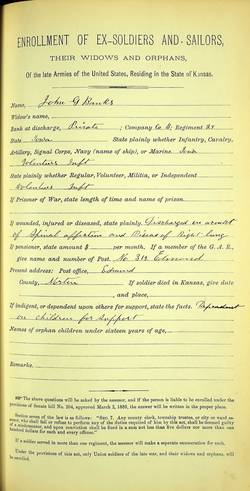 ENROLLMENT OF EX-SOLDIERS AND SAILORS,
THEIR WIDOWS AND ORPHANS,
Of the late Armies of the United States, Residing in the State of Kansas.
Name, John G Banks
Widow's name,
Rank at discharge, Private ; Company G ; Regiment 24
State Iowa State plainly whether Infantry, Cavalry,
Artillery, Signal Corps, Navy (name of ship), or Marine. Iowa
Volunteer Inft
State plainly whether Regular, Volunteer, Militia, or Independent
Volunteer Inft
If Prisoner of War, state length of time and name of prison.
If wounded, injured or diseased, state plainly. Discharged on account
of Spinal affection and Disease of Right lung
If pensioner, state amount $ per month. If a member of the G. A. R.,
give name and number of Post. No 312
Present address: Post office,
County, Norton If soldier died in Kansas, give date
, and place,
If indigent, or dependent upon others for support, state the facts. Dependent
on children for support
Names of orphan children under sixteen years of age,
Remarks,
The above questions will be asked by the assessor, and if the person is liable to be enrolled under the
provisions of Senate bill No. 204, approved March 2, 1889, the answer will be written in the proper place.
Section seven of the law is as follows: "SEC. 7. Any county clerk, township trustee, or city or ward as-
sessor, who shall fail or refuse to perform any of the duties required of him by this act, shall be deemed guilty
of a misdemeanor, and upon conviction shall be fined in a sum not less than ten dollars nor more than one
hundred dollars for each and every offense."
If a soldier served in more than one regiment, the assessor will make a separate enumeration for each.
Under the provisions of this act, only Union soldiers of the late war, and their widows and orphans, will
be enrolled.